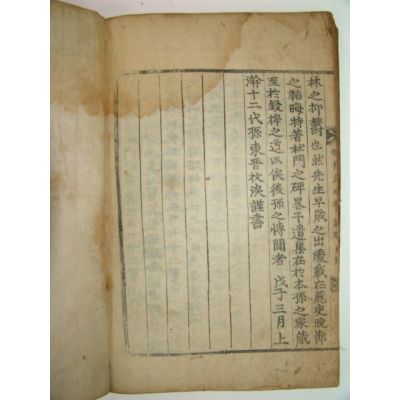 林之抑鬱也然先生早歲之出處載在麗史晩節
之韜晦特著杜門之碑畧干遺集在於本孫之家藏
至於鋟梓之道以俟後孫之傳聞者 戊子三月上
澣十二代孫東晋收淚謹書